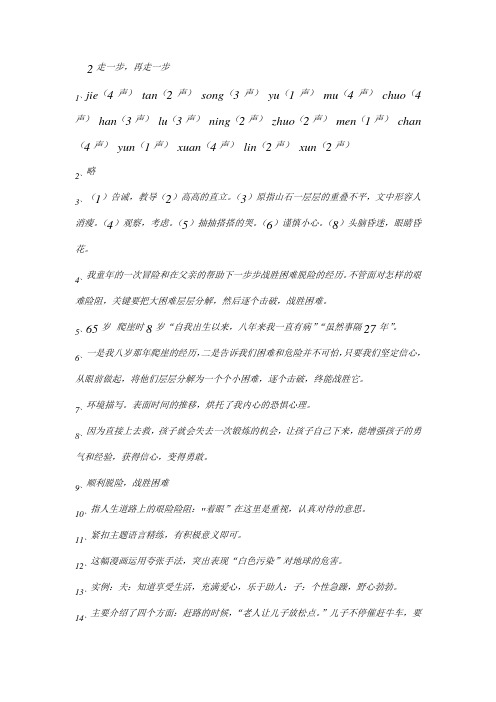 2 走一步，再走一步
1、jie（4 声） tan（2 声） song（3 声） yu（1 声） mu（4 声） chuo（4
声） han（3 声） lu（3 声） ning（2 声） zhuo（2 声） men（1 声） chan
（4 声） yun（1 声） xuan（4 声） lin（2 声） xun（2 声）
2、略
3、（1）告诫，教导（2）高高的直立。（3）原指山石一层层的重叠不平，文中形容人
消瘦。（4）观察，考虑。（5）抽抽搭搭的哭。（6）谨慎小心。（8）头脑昏迷，眼睛昏
花。
4、我童年的一次冒险和在父亲的帮助下一步步战胜困难脱险的经历。不管面对怎样的艰
难险阻，关键要把大困难层层分解，然后逐个击破，战胜困难。
5、65 岁 爬崖时 8 岁 “自我出生以来，八年来我一直有病”“虽然事隔 27 年”。
6、一是我八岁那年爬崖的经历，二是告诉我们困难和危险并不可怕，只要我们坚定信心，
从眼前做起，将他们层层分解为一个个小困难，逐个击破，终能战胜它。
7、环境描写。表面时间的推移，烘托了我内心的恐惧心理。
8、因为直接上去救，孩子就会失去一次锻炼的机会，让孩子自己下来，能增强孩子的勇
气和经验，获得信心，变得勇敢。
9、顺利脱险，战胜困难
10、指人生道路上的艰险险阻："着眼”在这里是重视，认真对待的意思。
11、紧扣主题语言精练，有积极意义即可。
12、这幅漫画运用夸张手法，突出表现“白色污染”对地球的危害。
13、实例：夫：知道享受生活，充满爱心，乐于助人：子：个性急躁，野心勃勃。
14、主要介绍了四个方面：赶路的时候，“老人让儿子放松点。”儿子不停催赶牛车，要